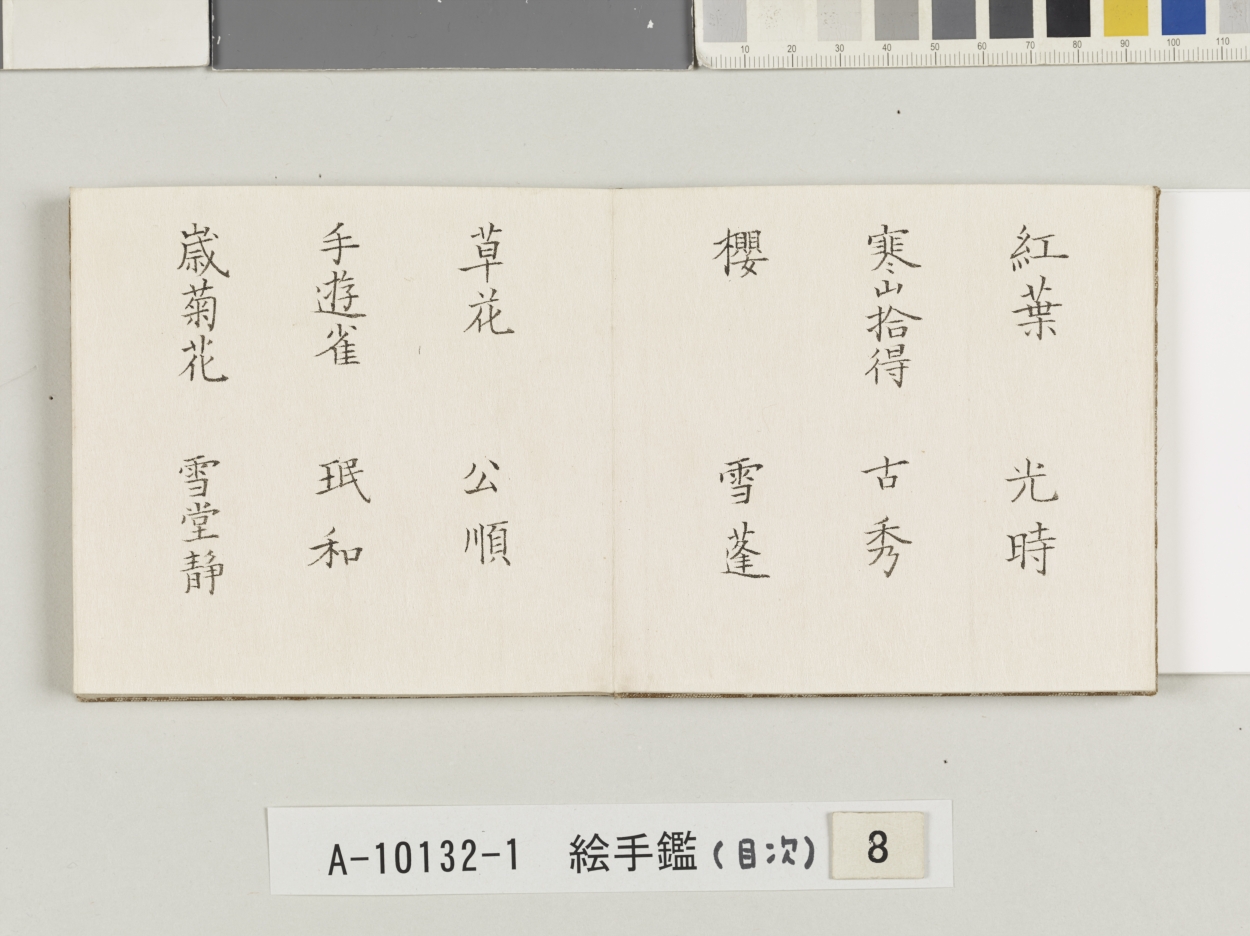 紅葉 光時
寒山拾得 古秀
櫻 雪蓬
草花 公順
手遊雀 珉和
歳菊花 雪堂静
A-10132-1 絵手鑑(目次) 8
10 20 30 40 50 60 70 80 90 100 110